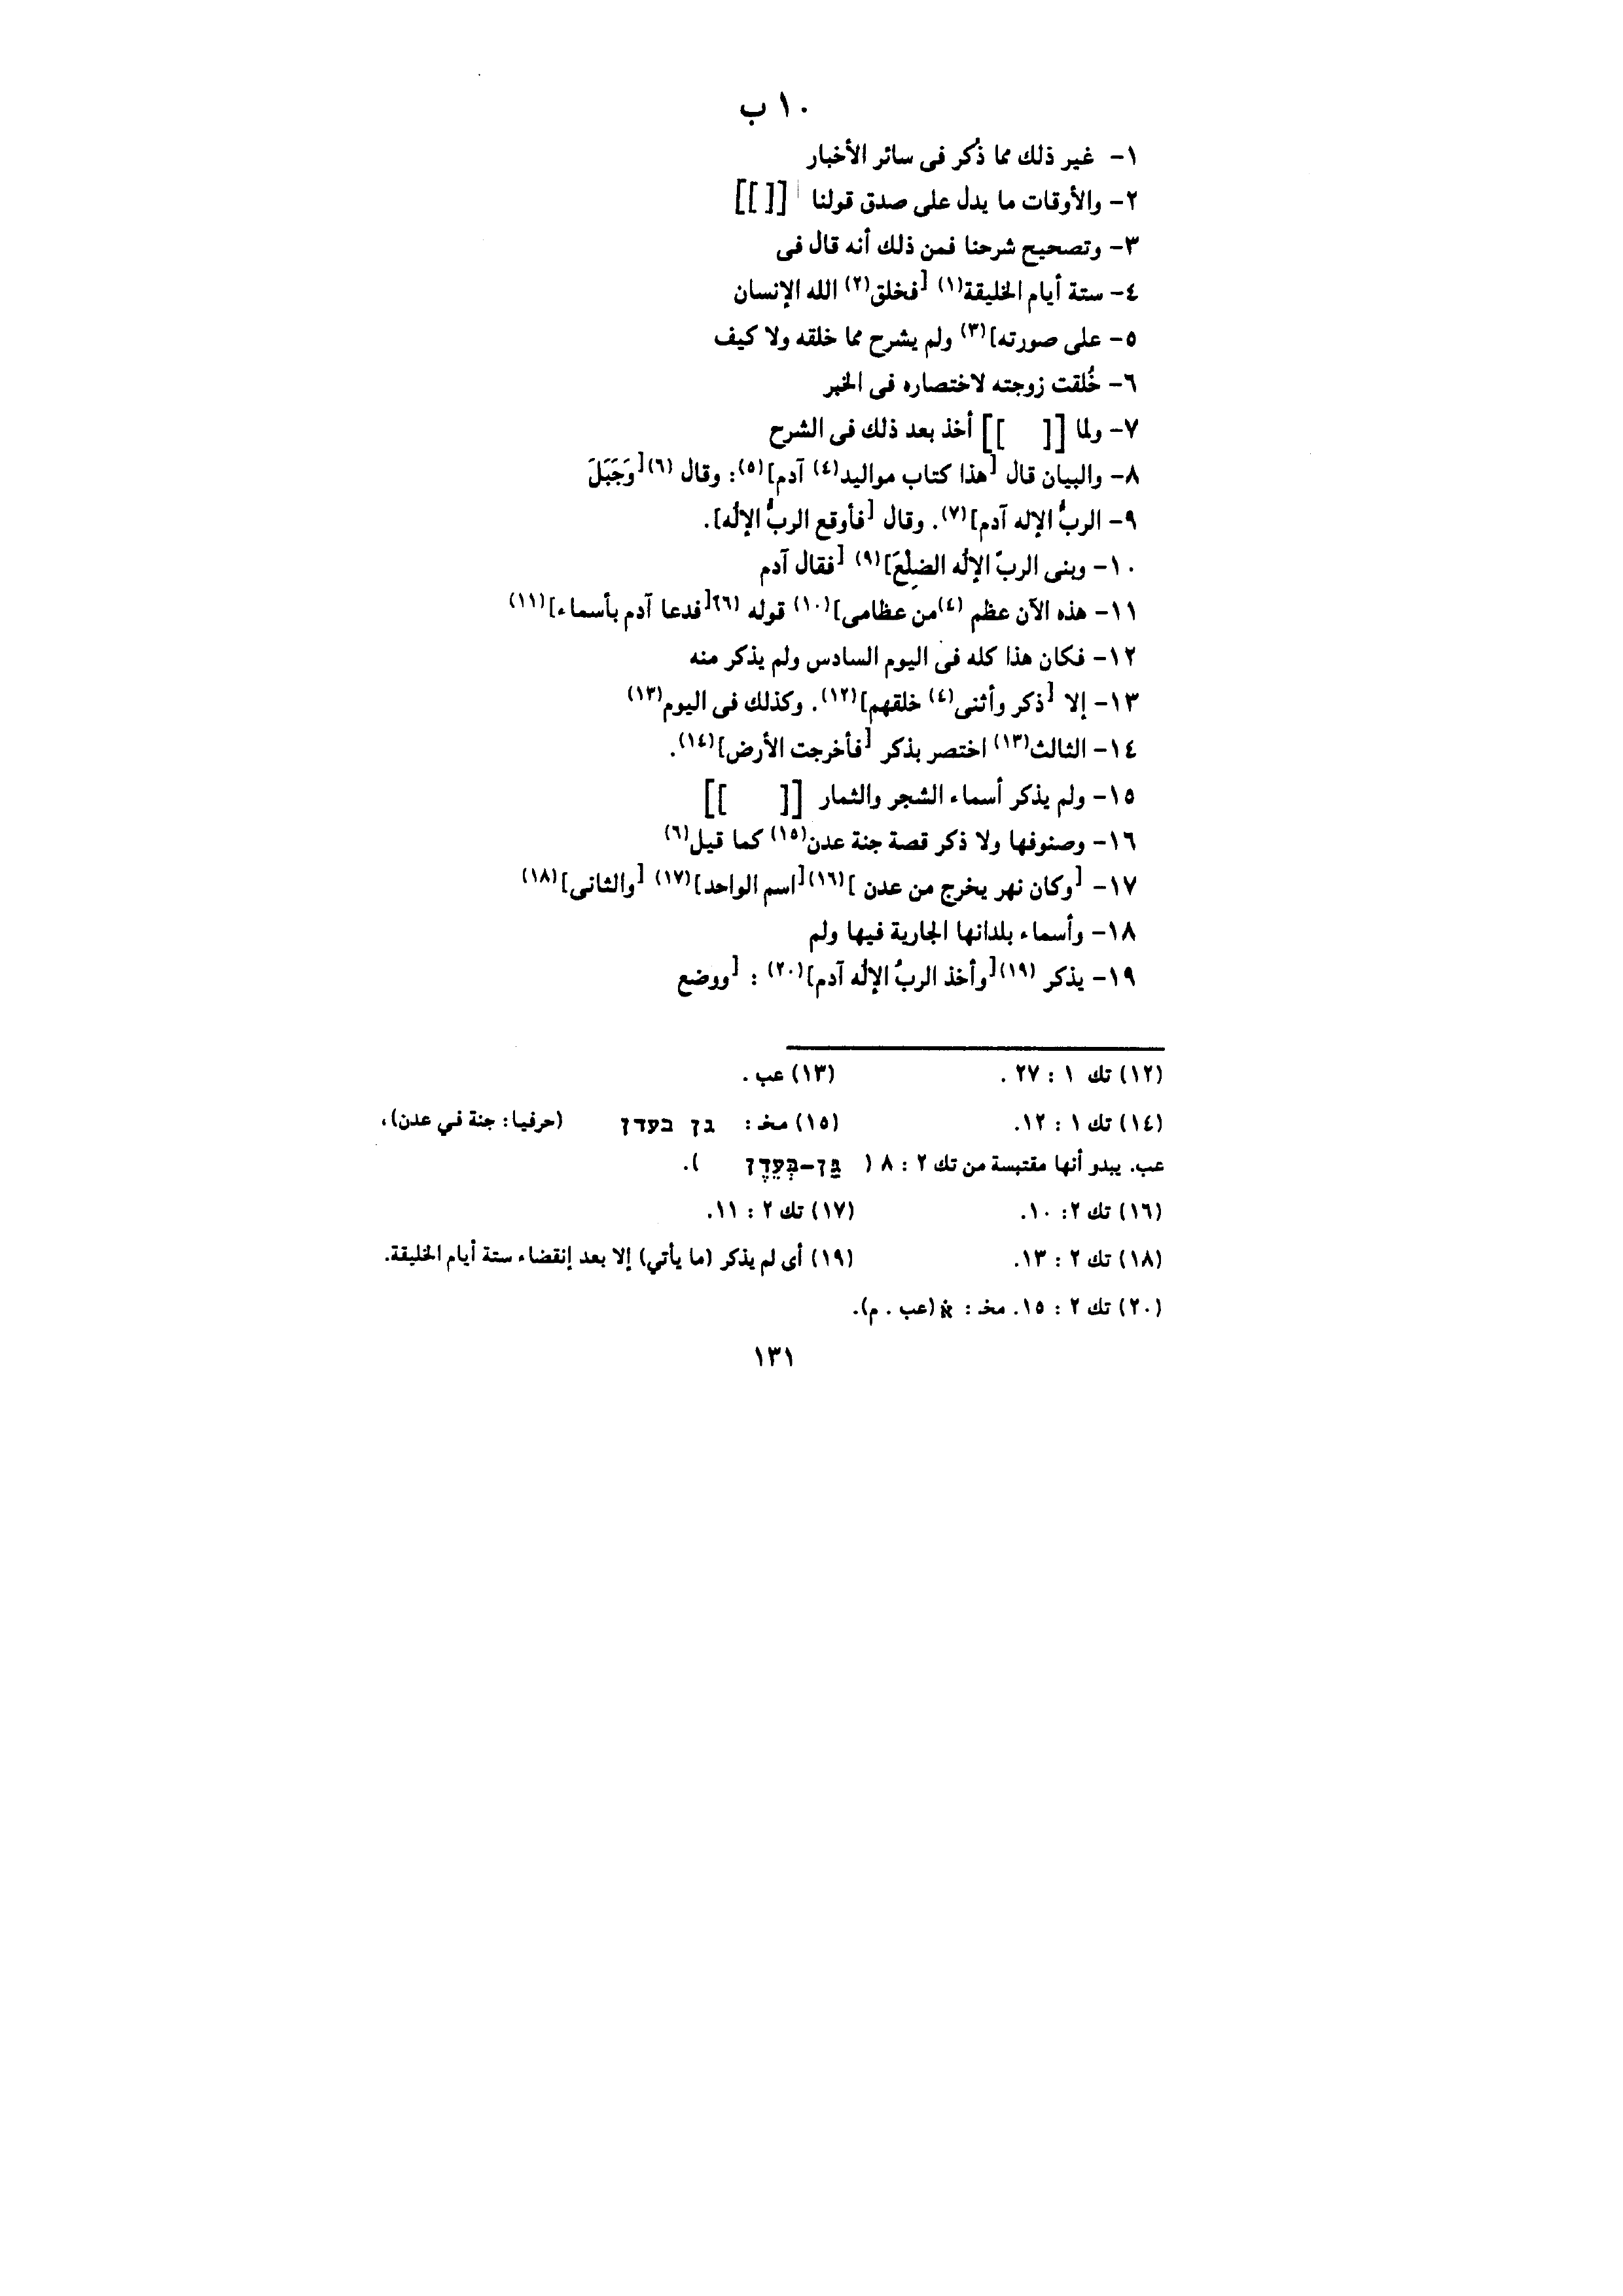 ١٠ ب
١- غير ذلك مما ذُكر فى سائر الأخبار
٢- والأوقات ما يدل على صدق قولنا [[ ]]
٣- وتصحيح شرحنا فمن ذلك أنه قال فى
٤- ستة أيام الخليقة(١) [فخلق(٢) الله الإنسان
٥- على صورته](٣) ولم يشرح مما خلقه ولا كيف
٦- خُلقت زوجته لاختصاره فى الخبر
٧- ولما [[ ]] أخذ بعد ذلك فى الشرح
٨- والبيان قال [هذا كتاب مواليد(٤) آدم](٥): وقال (٦)[وَجَبَلَ
٩- الربُّ الإله آدم](٧). وقال [فأوقع الربُّ الإلٰه].
١٠- وبنى الربّ الإلٰه الضِلْعَ](٩) [فقال آدم
١١- هذه الآن عظم (٤)من عظامى](١٠) قوله (٢٦)[فدعا آدم بأسماء](١١)
١٢- فكان هذا كله فى اليوم السادس ولم يذكر منه
١٣- إلا [ذكر وأثنى(٤) خلقهم](١٢). وكذلك فى اليوم(١٣)
١٤- الثالث(١٣) اختصر بذكر [فأخرجت الأرض](١٤).
١٥- ولم يذكر أسماء الشجر والثمار [[ ]]
١٦- وصنوفها ولا ذكر قصة جنة عدن(١٥) كما قيل(٦)
١٧- [وكان نهر يخرج من عدن ](١٦)[اسم الواحد](١٧) [والثانى](١٨)
١٨- وأسماء بلدانها الجارية فيها ولم
١٩- يذكر (١٩)[وأخذ الربُ الإلٰه آدم](٢٠) : [ووضع
(١٢) تك ١ : ٢٧ . (١٣) عب .
(١٤) تك ١ : ١٢. (١٥) مخـ : גן בעדן (حرفيا: جنة في عدن)،
عب. يبدو أنها مقتبسة من تك ٢ : ٨ ( גַּן-בְּעֵדֶן ).
(١٦) تك ٢: ١٠. (١٧) تك ٢ : ١١.
(١٨) تك ٢ : ١٣. (١٩) أى لم يذكر (ما يأتي) إلا بعد إنقضاء ستة أيام الخليقة.
(٢٠) تك ٢ : ١٥. مخـ : (عب . م).
١٣١